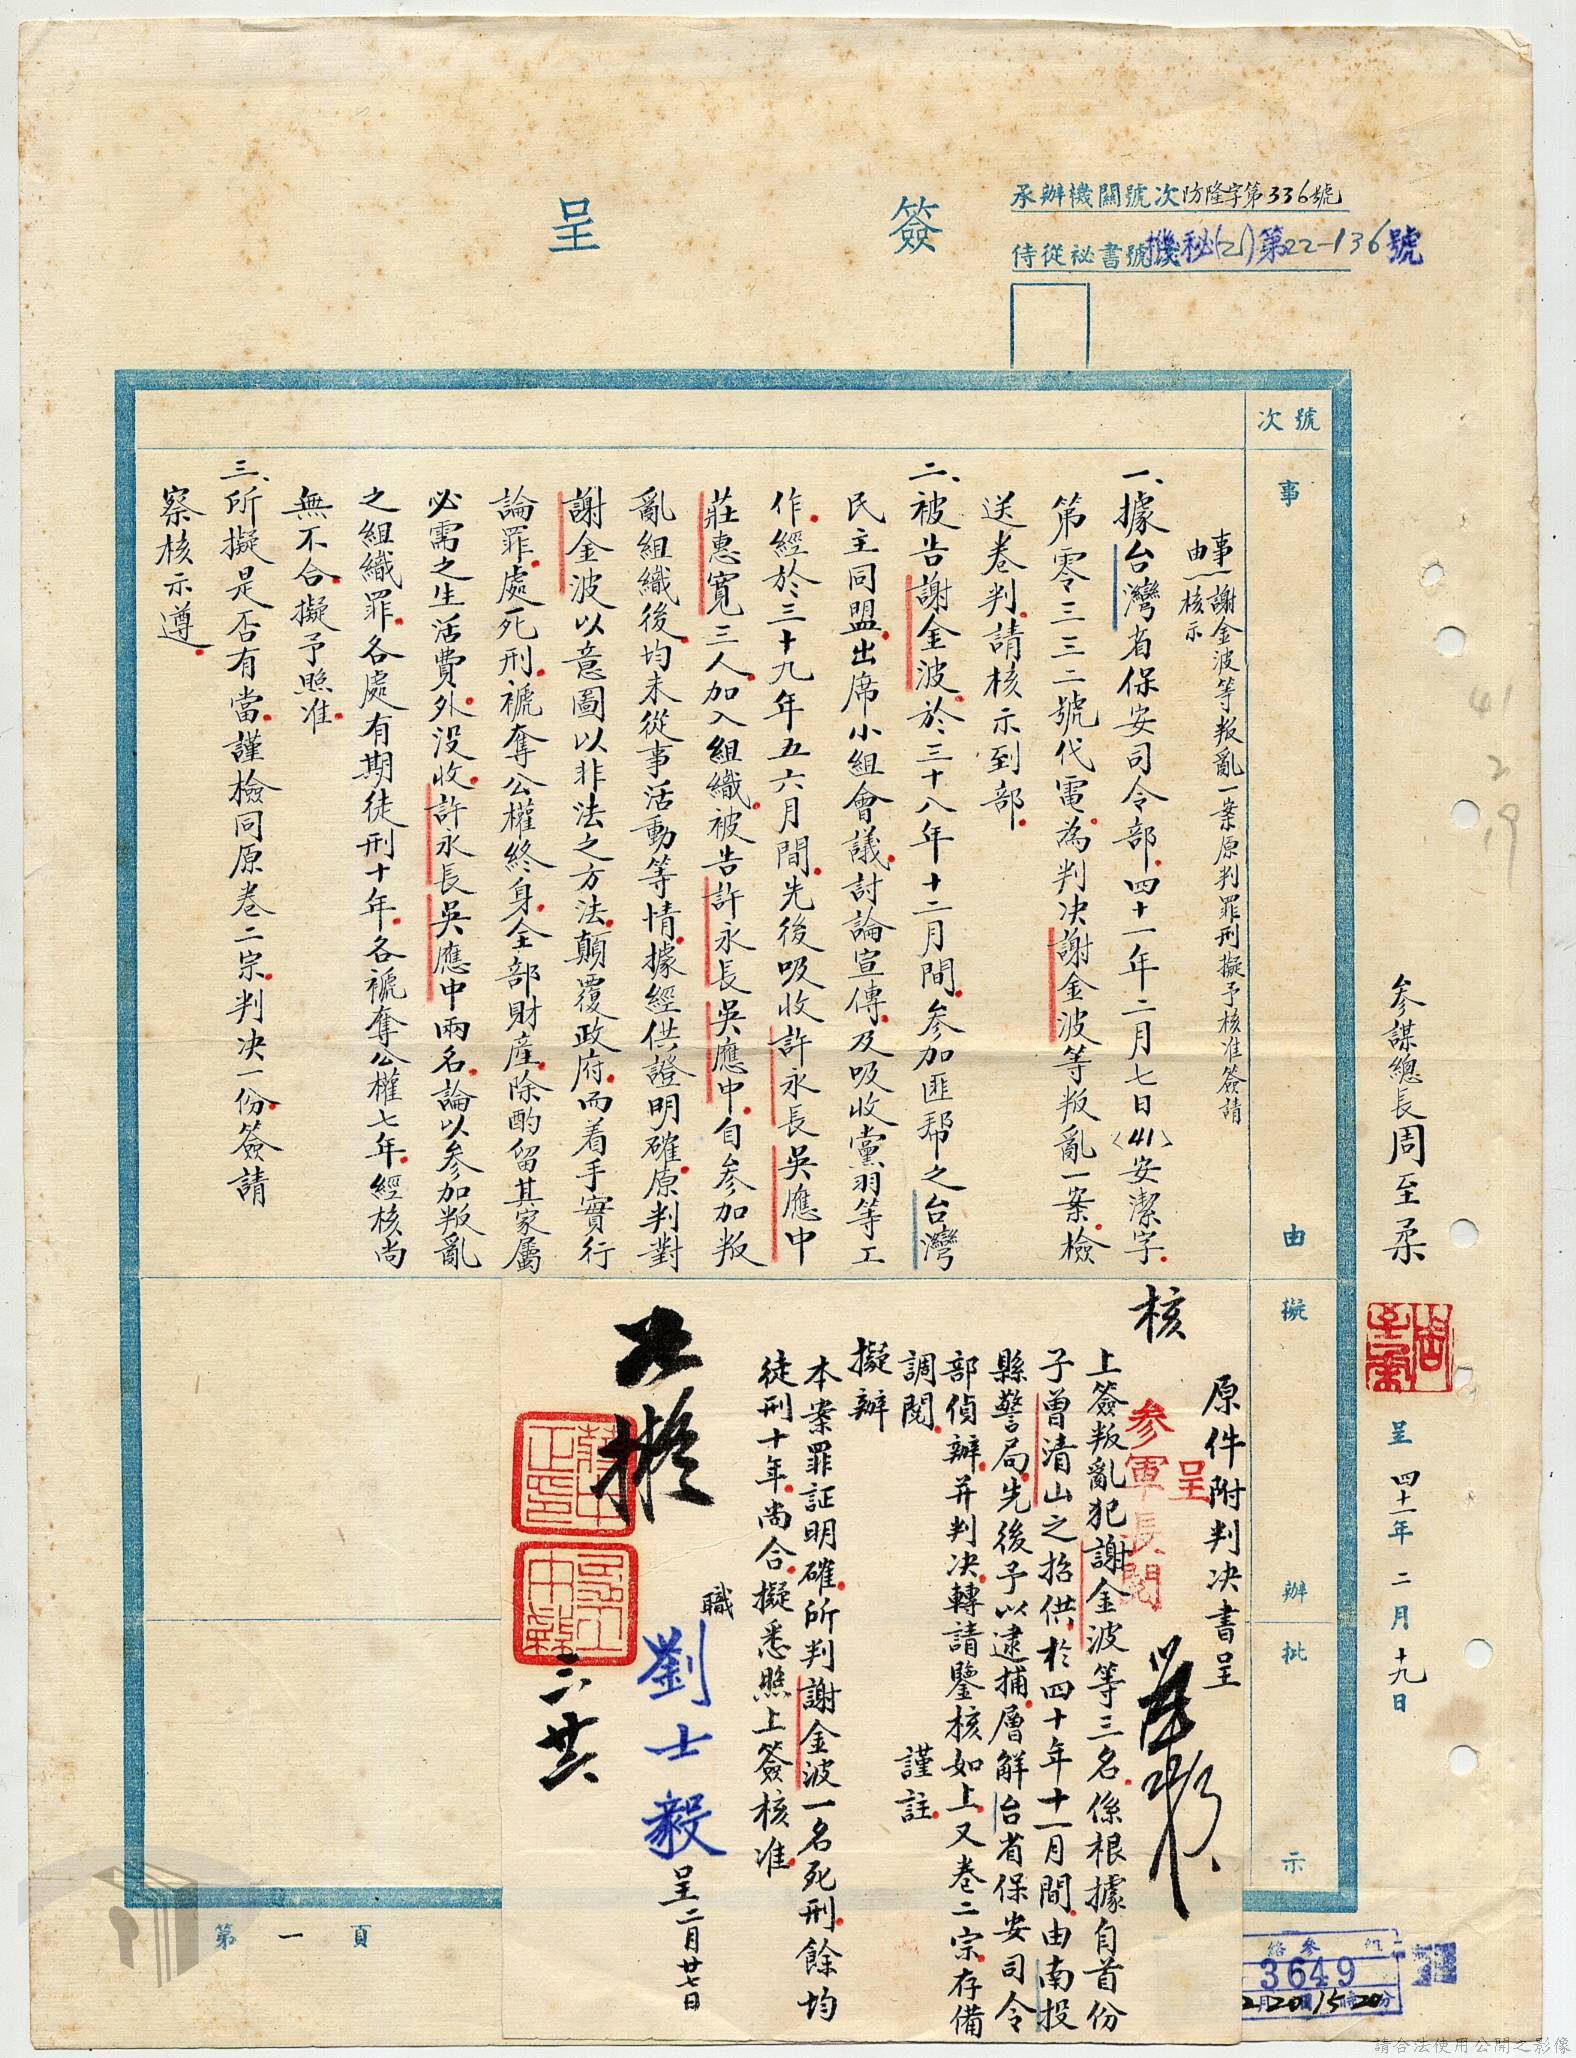 簽呈
承辦機關號次防隆字第336號
侍從祕書號次機秘(21)第22-136號
號次
事由
擬辦
批示
事由
謝金波等叛亂一案原判罪刑擬予核准簽請
核示
一、據台灣省保安司令部四十一年二月七日(41)安潔字
第零三三二號代電為判決謝金波等叛亂一案檢
送卷判請核示到部
二、被告謝金波於三十八年十二月間參加匪幫之台灣
民主同盟出席小組會議討論宣傳及吸收黨羽等工
作經於三十九年五六月間先後吸收許永長吳應中
莊惠寬三人加入組織被告許永長吳應中自參加叛
亂組織後均未從事活動等情據經供證明確原判對
謝金波以意圖以非法之方法顛覆政府而着手實行
論罪處死刑褫奪公權終身全部財產除酌留其家屬
必需之生活費外沒收許永長吳應中兩名論以參加叛亂
之組織罪各處有期徒刑十年各褫奪公權七年經核尚
無不合擬予照准
三、所擬是否有當謹檢同原卷二宗判決一份簽請
察核示遵
參謀總長周至柔
呈 四十一年二月十九日
41
2
19
原件附判決書呈
核
呈
參軍長閱
上簽叛亂犯謝金波等三名係根據自首份
子曾清山之招供於四十年十一月間由南投
縣警局先後予以逮捕層解台省保安司令
部偵辦并判決轉請鑒核如上又卷二宗存備
調閱 謹註
擬辦
本案罪証明確所判謝金波一名死刑餘均
徒刑十年尚合擬悉照上簽核准
職劉士毅呈二月廿七日
如擬
蔣中正印
二、廿
第一頁
3649
2 20 15 20
請合法使用公開之影像